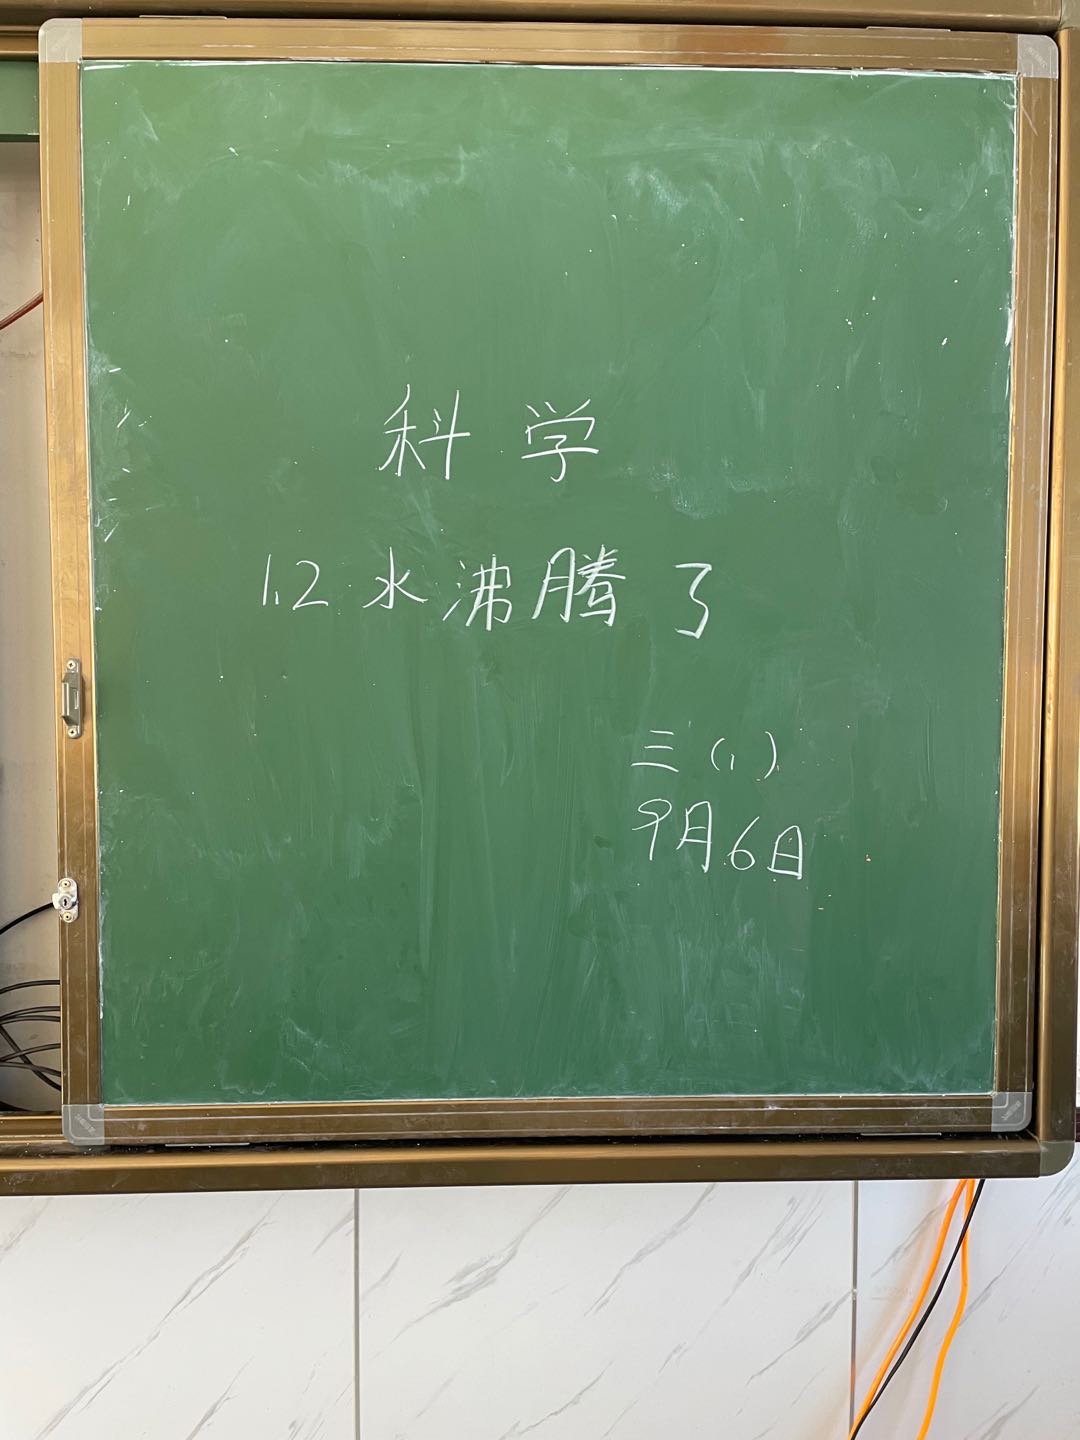 科学
1.2 水沸腾了
三(1)
9月6日